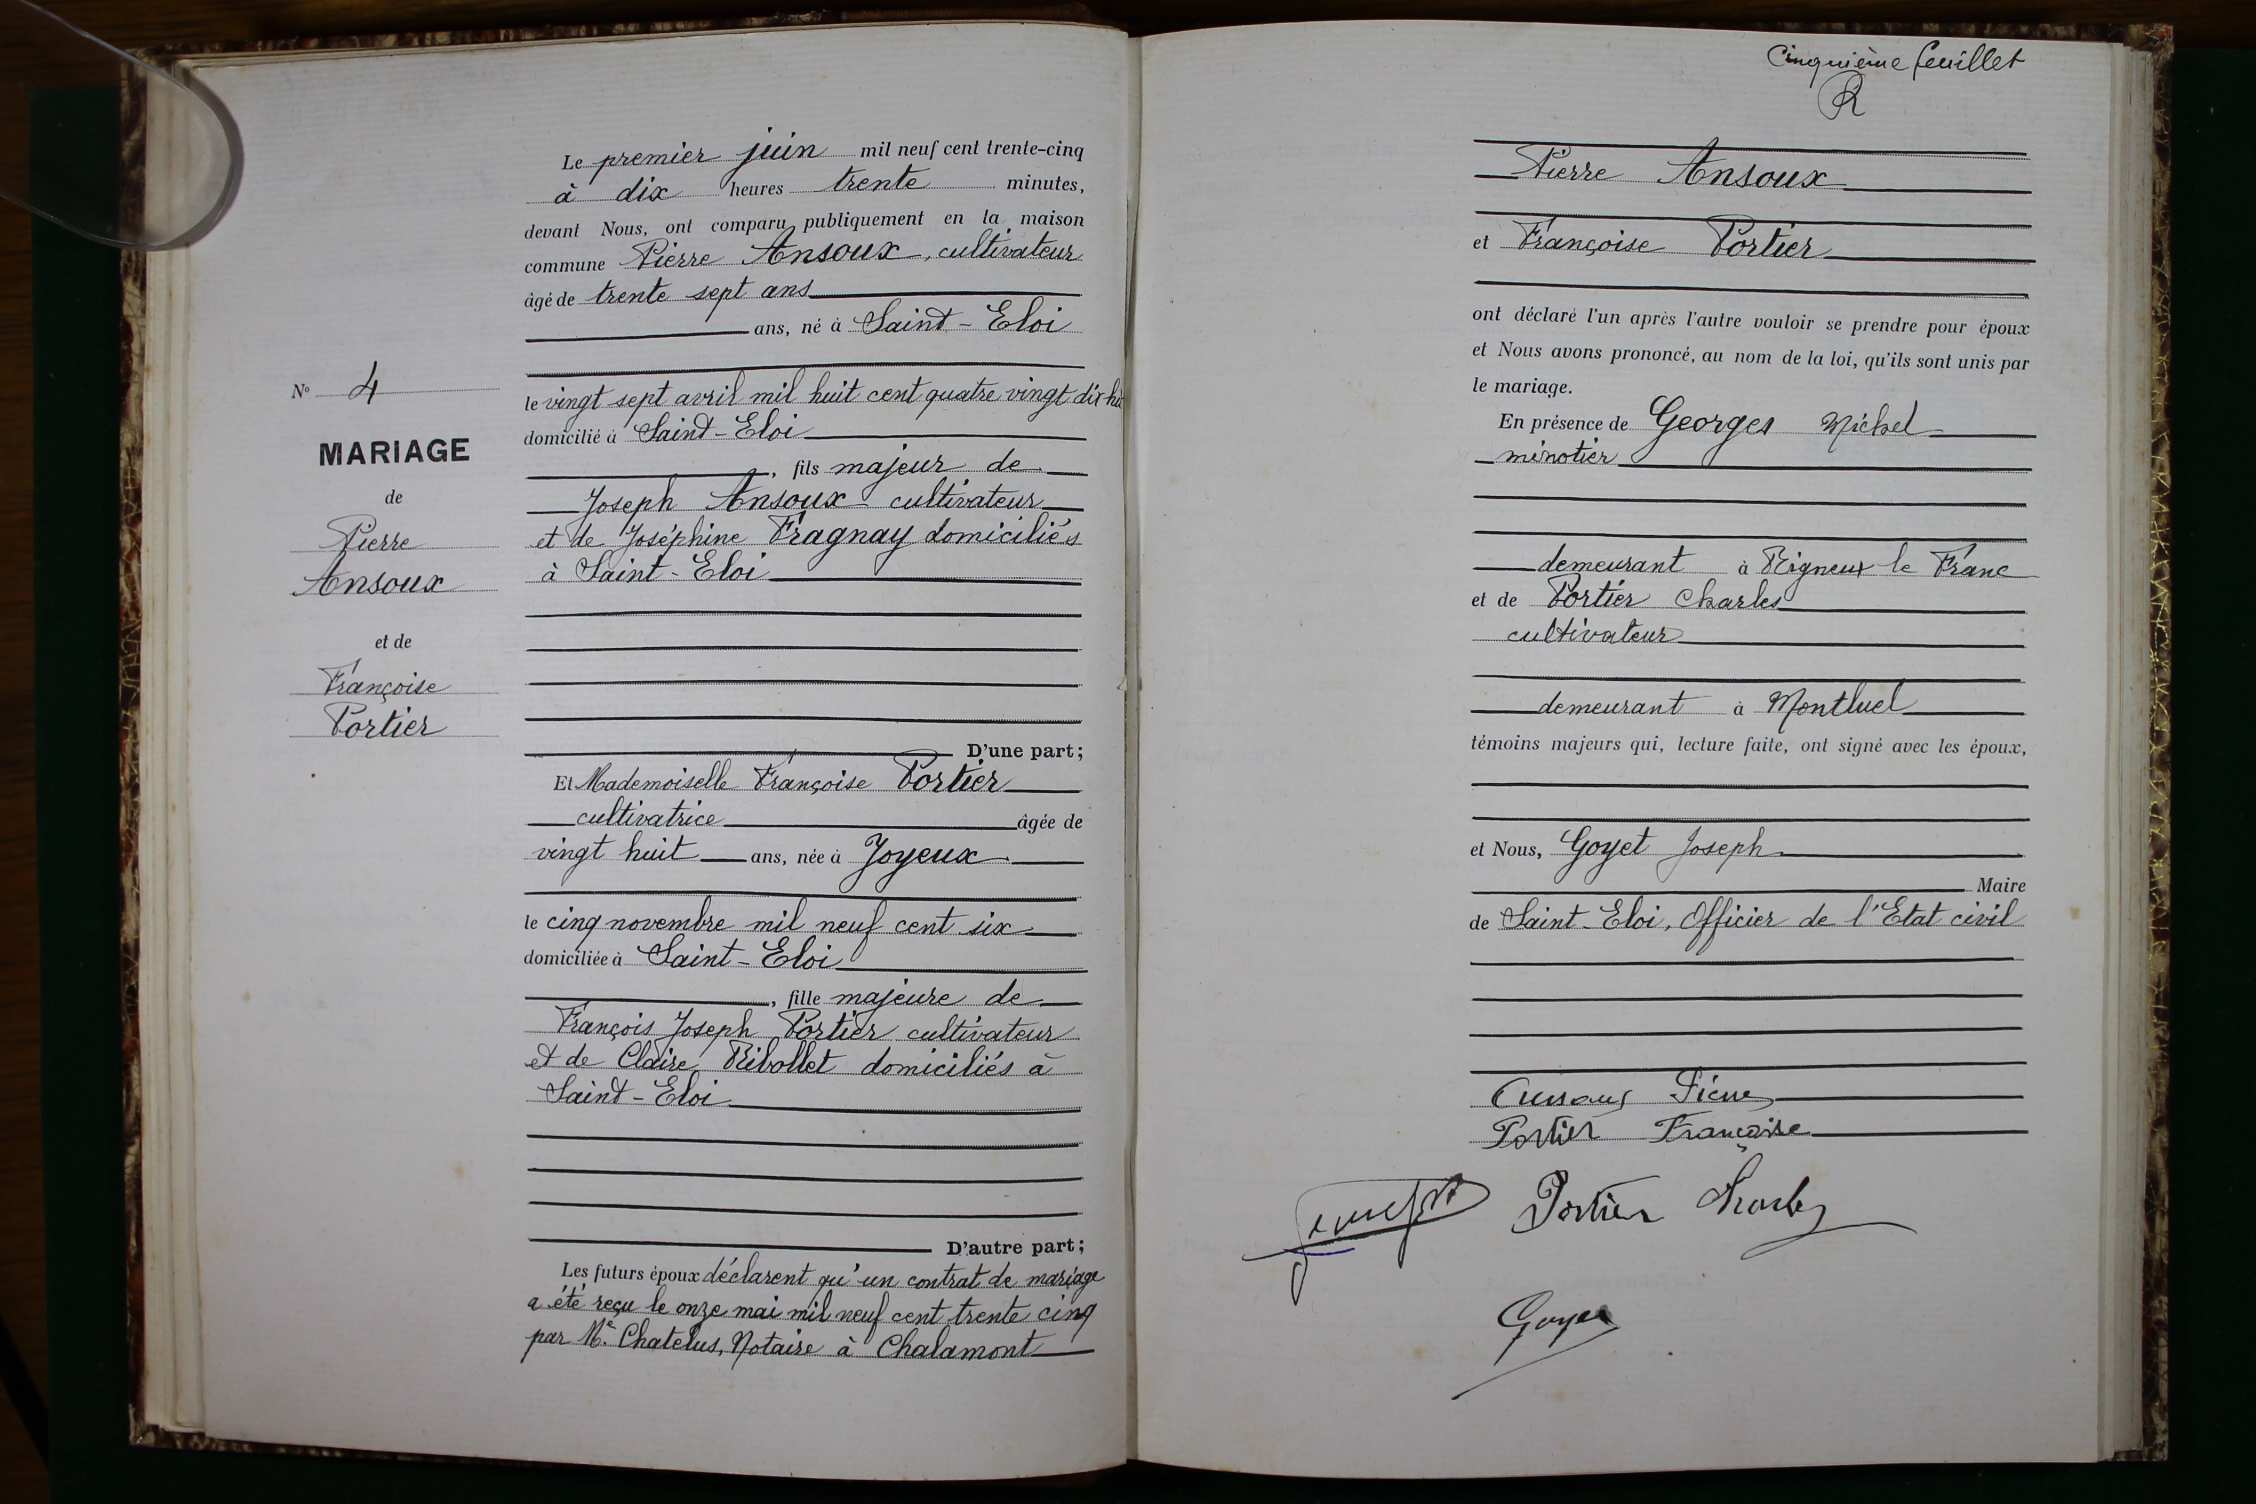 N° 4
MARIAGE
de
Pierre
Ansoux
et de
Françoise
Portier
Le premier juin mil neuf cent trente-cinq
à dix heures trente minutes,
devant Nous, ont comparu publiquement en la maison
commune Pierre Ansoux, cultivateur
âgé de trente sept ans
ans, né à Saint-Eloi
le vingt sept avril mil huit cent quatre vingt dix
domicilié à Saint-Eloi
, fils majeur de
Joseph Ansoux cultivateur
et de Joséphine Fragnay domiciliés
à Saint-Eloi
D'une part;
Et Mademoiselle Françoise Portier
cultivatrice âgée de
vingt huit ans, née à Joyeux
le cinq novembre mil neuf cent six
domiciliée à Saint-Eloi
, fille majeure de
François Joseph Portier cultivateur
et de Claire Ribollet domiciliés à
Saint-Eloi
D'autre part;
Les futurs époux déclarent qu'un contrat de mariage
a été reçu le onze mai mil neuf cent trente cinq
par Me Chatelus, Notaire à Chalamont
Cinquième feuillet
R
Pierre Ansoux
et Françoise Portier
ont déclaré l'un après l'autre vouloir se prendre pour époux
et Nous avons prononcé, au nom de la loi, qu'ils sont unis par
le mariage.
En présence de Georges Michel
minotier
demeurant à Rigneux le Franc
et de Portier Charles
cultivateur
demeurant à Montluel
témoins majeurs qui, lecture faite, ont signé avec les époux,
et Nous, Goyet Joseph
Maire
de Saint-Eloi, Officier de l'Etat civil
Pierre
Portier Françoise
Portier Charles
Goyet